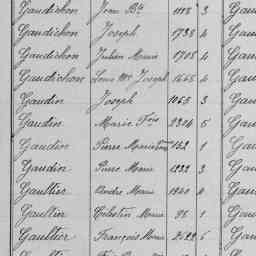 Gaudichon Jean Bte 1118 3 Gau
Gaudichon Joseph 1738 4 Gau
Gaudichon Julien Marie 1708 4 Gau
Gaudichon Louis Joseph 1665 4 Gau
Gaudin Joseph 1065 3 Gau
Gaudin Marie Fois 2304 5 Gau
Gaudin Pierre 162 1 Gau
Gaudin Pierre Marie 1232 3 Gau
Gaultier Andre Marie 1940 4 Gau
Gaullier Celestin Marie 96 1 Gau
Gaultier François Marie 2522 5 Gau